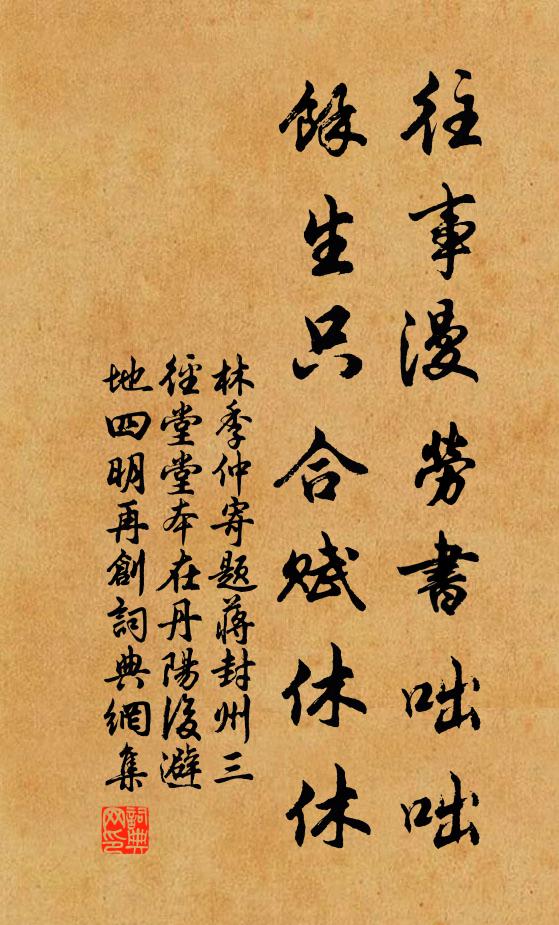 往事漫勞書咄咄
餘生只合賦休休
林季仲寄題蔣封州三
徑堂堂本在丹陽後避
地四明再創詞典網集
詞典网印